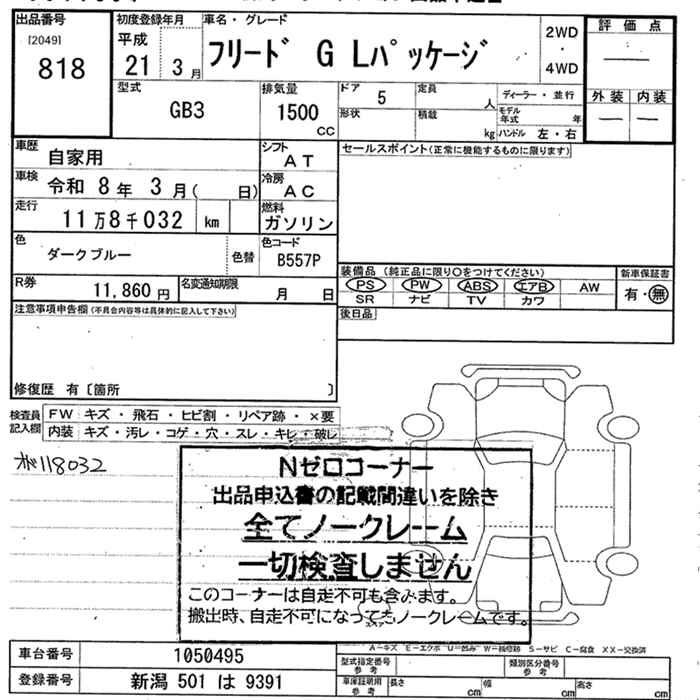 出品番号
[2049]
818
初度登録年月
平成
21 3月
車名・グレード
フリード G Lパッケージ
2WD
・
4WD
評価点
外装 内装
型式
GB3
排気量
1500
CC
ドア
5
定員
人
ディーラー・並行
形状
積載
kg
モデル年式 年
ハンドル 左・右
車歴
自家用
シフト
AT
セールスポイント(正常に機能するものに限ります)
車検
令和 8年 3月( 日)
冷房
AC
走行
11万8千032 km
燃料
ガソリン
色
ダークブルー
色替
色コード
B557P
R券
11,860円
名変通知期限
月 日
装備品(純正品に限り○をつけてください)
PS PW ABS エアB AW
SR ナビ TV カワ
新車保証書
有・無
後日品
注意事項申告欄(不具合内容等は具体的に記入して下さい)
修復歴 有〔箇所 〕
検査員
記入欄
FW キズ・飛石・ヒビ割・リペア跡・×要
内装 キズ・汚レ・コゲ・穴・スレ・キレ・破レ
118032
Nゼロコーナー
出品申込書の記載間違いを除き
全てノークレーム
一切検査しません
このコーナーは自走不可も含みます。
搬出時、自走不可になってもノークレームです。
A－キズ E－エクボ U－凹み W－補修跡 S－サビ C－腐食 XX－交換済
車台番号 1050495
登録番号 新潟 501 は 9391
型式指定番号
参考
類別区分番号
参考
車庫証明用
参考
長さ cm 幅 cm 高さ cm